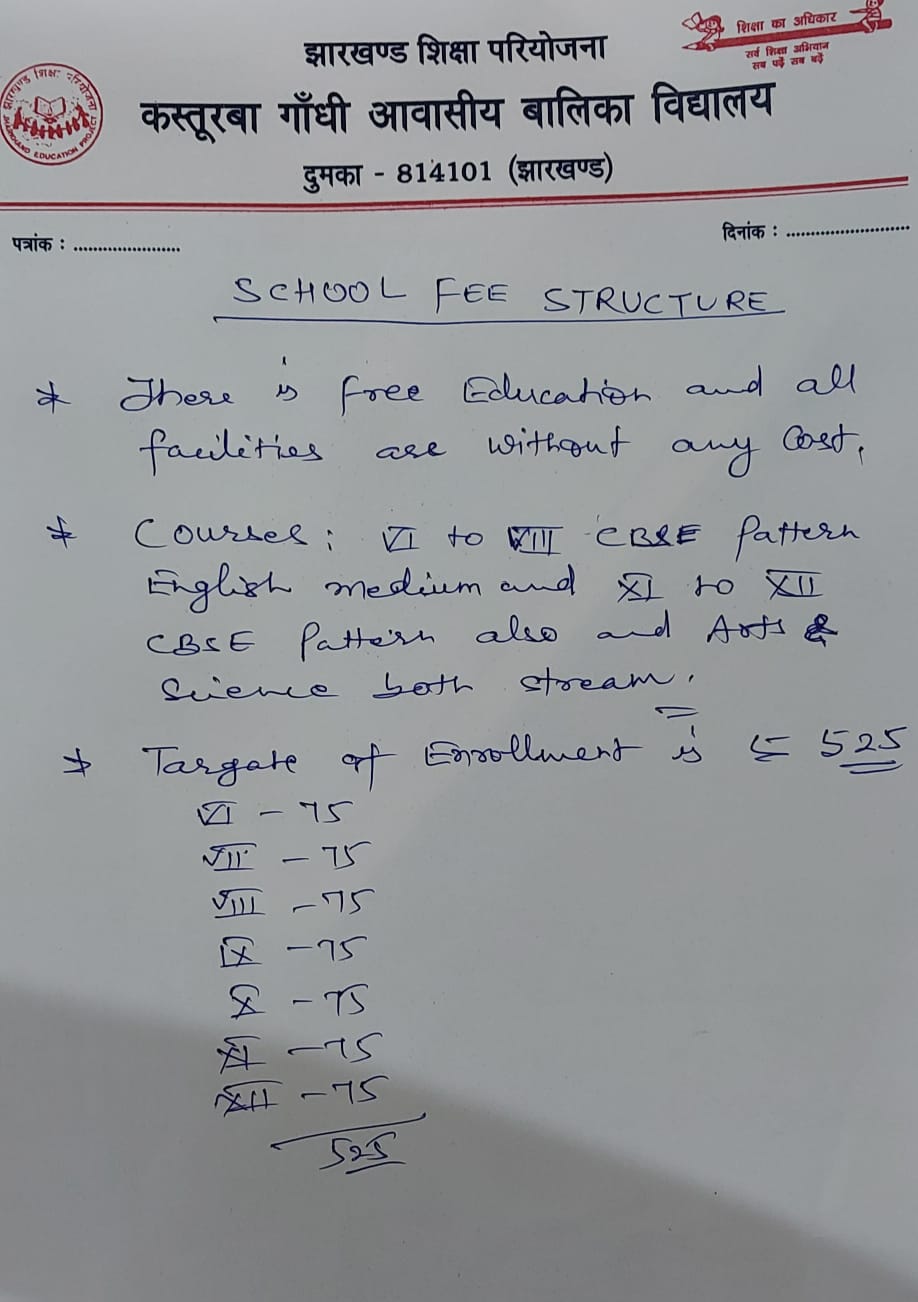 शिक्षा का अधिकार
सर्व शिक्षा अभियान
सब पढ़ें सब बढ़ें
झारखण्ड शिक्षा परियोजना
कस्तूरबा गाँधी आवासीय बालिका विद्यालय
दुमका - 814101 (झारखण्ड)
झारखण्ड शिक्षा परियोजना
JHARKHAND EDUCATION PROJECT
पत्रांक : .....................
दिनांक : .........................
SCHOOL FEE STRUCTURE
* There is free Education and all
facilities are without any Cost.
* Courses: VI to VIII CBSE Pattern
English medium and XI to XII
CBSE Pattern also and Arts &
Science both stream.
* Targate of Enrollment is = 525
VI - 75
VII - 75
VIII - 75
IX - 75
X - 75
XI - 75
XII - 75
525